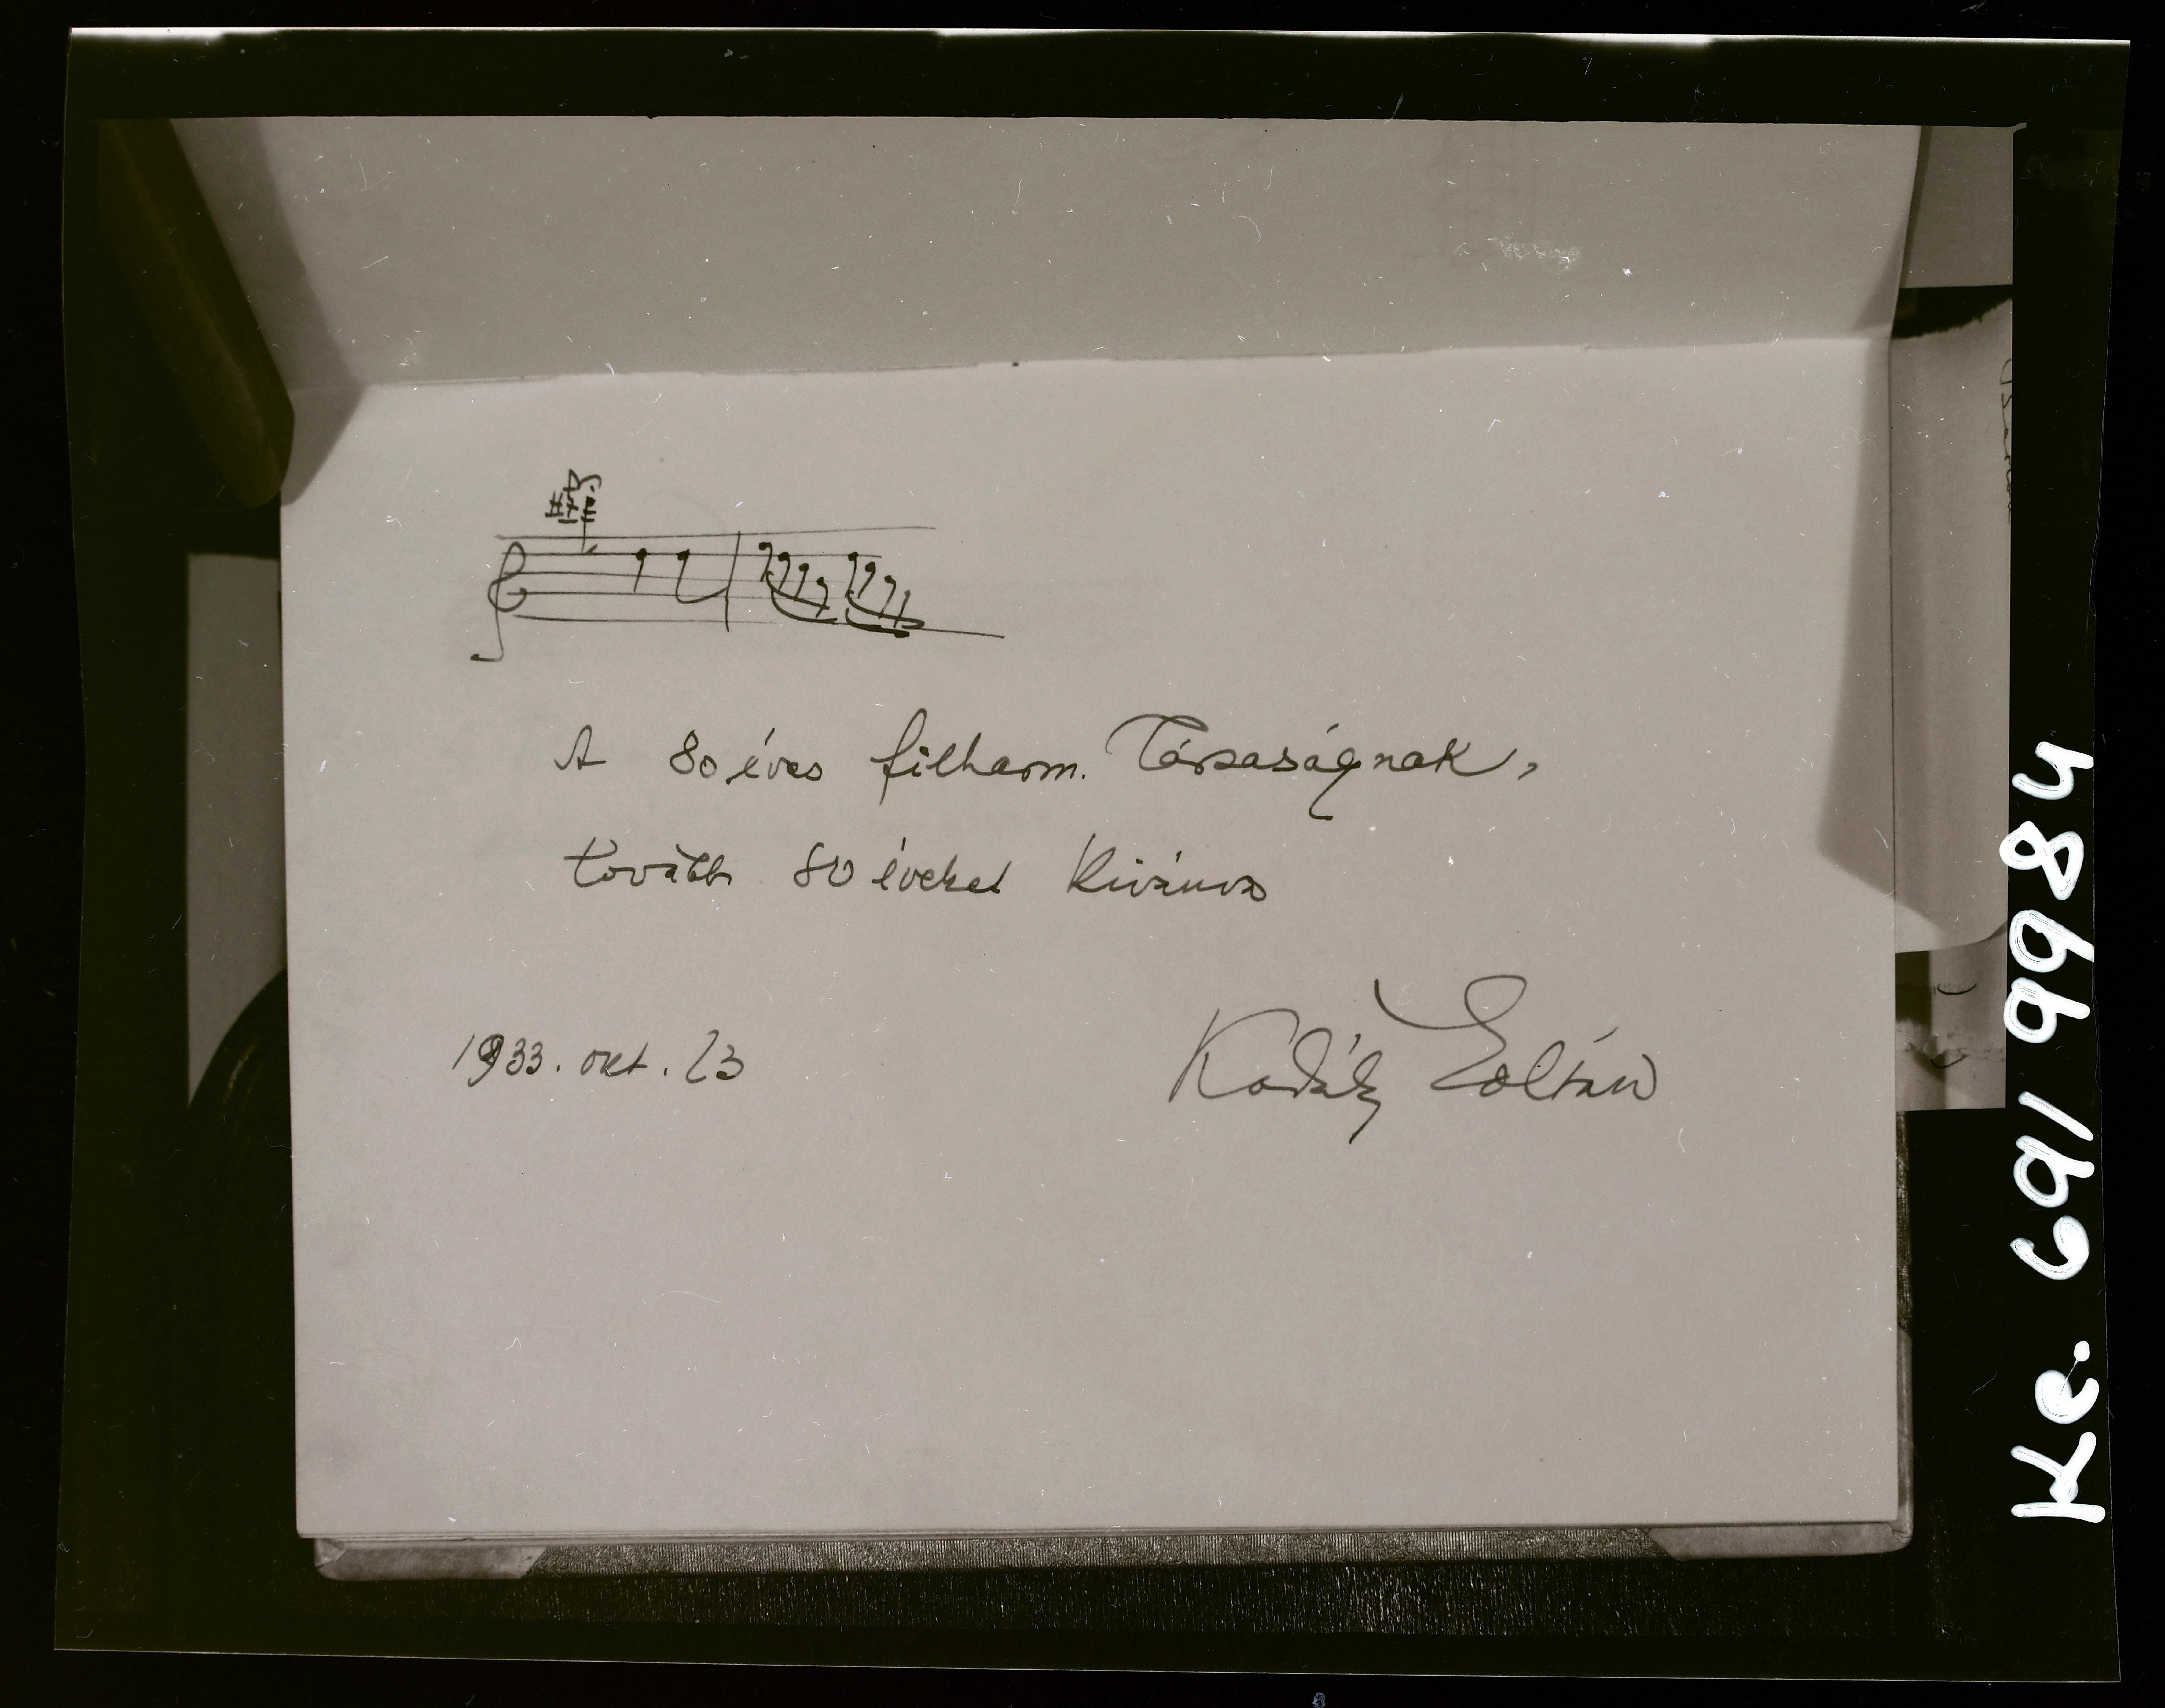 A 80 éves filharm. Társaságnak,
további 80 éveket kivánva
1933. okt. 23
Kodály Zoltán
Ke. 691 9984